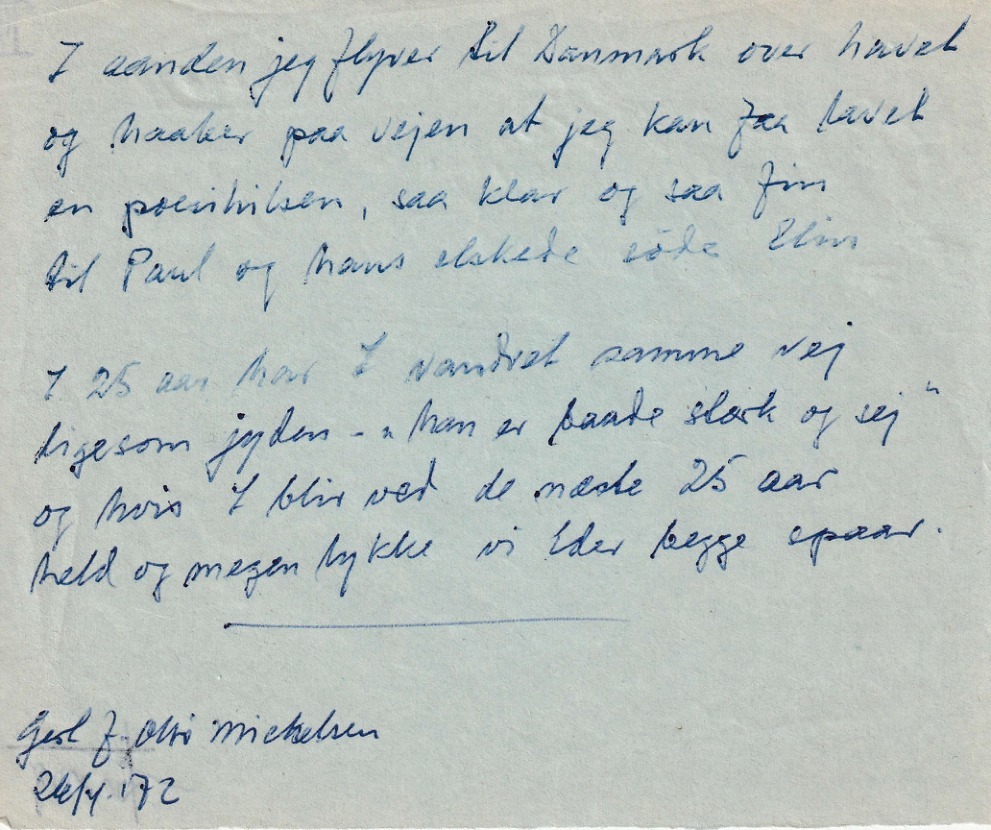 I aanden jeg flyver til Danmark over havet
og haaber paa vejen at jeg kan faa lavet
en poesihilsen, saa klar og saa fin
til Paul og hans elskede söde Elin
I 25 aar har I vandret samme vej
ligesom jyden - „han er baade stærk og sej"
og hvis I blir ved de næste 25 aar
held og megen lykke vi Eder begge spaar.
Otto Mickelsen